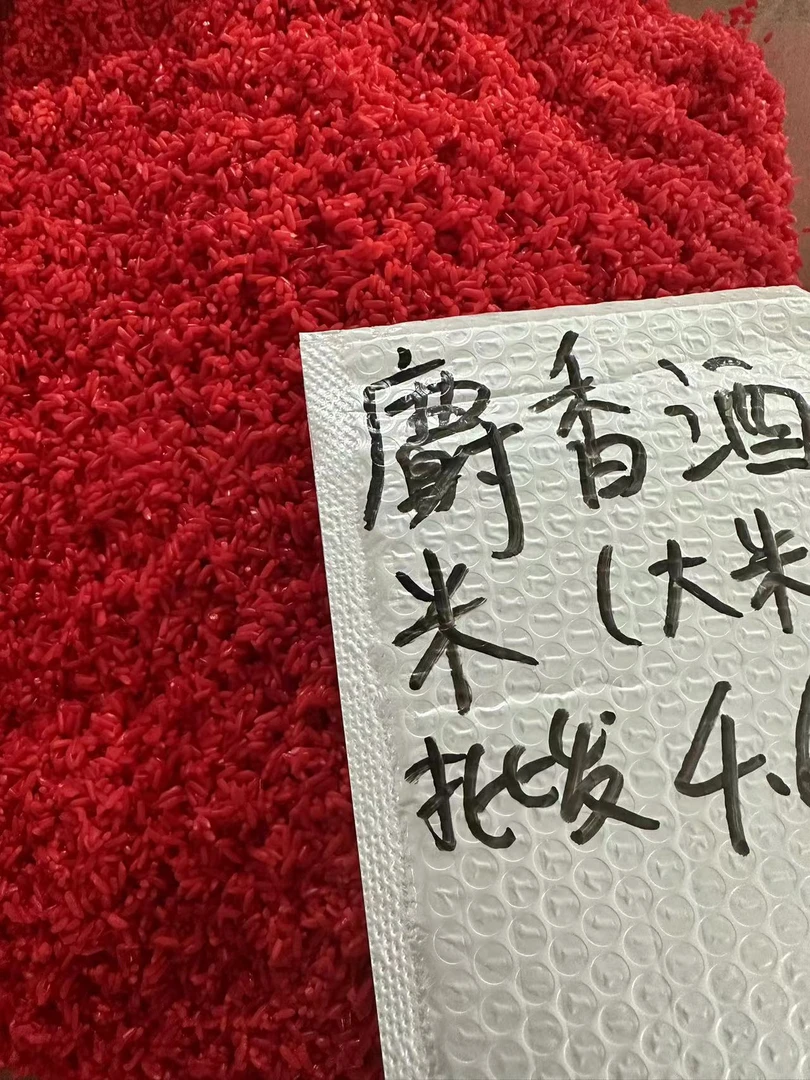 麝香酒
米 (大米
批发 4.